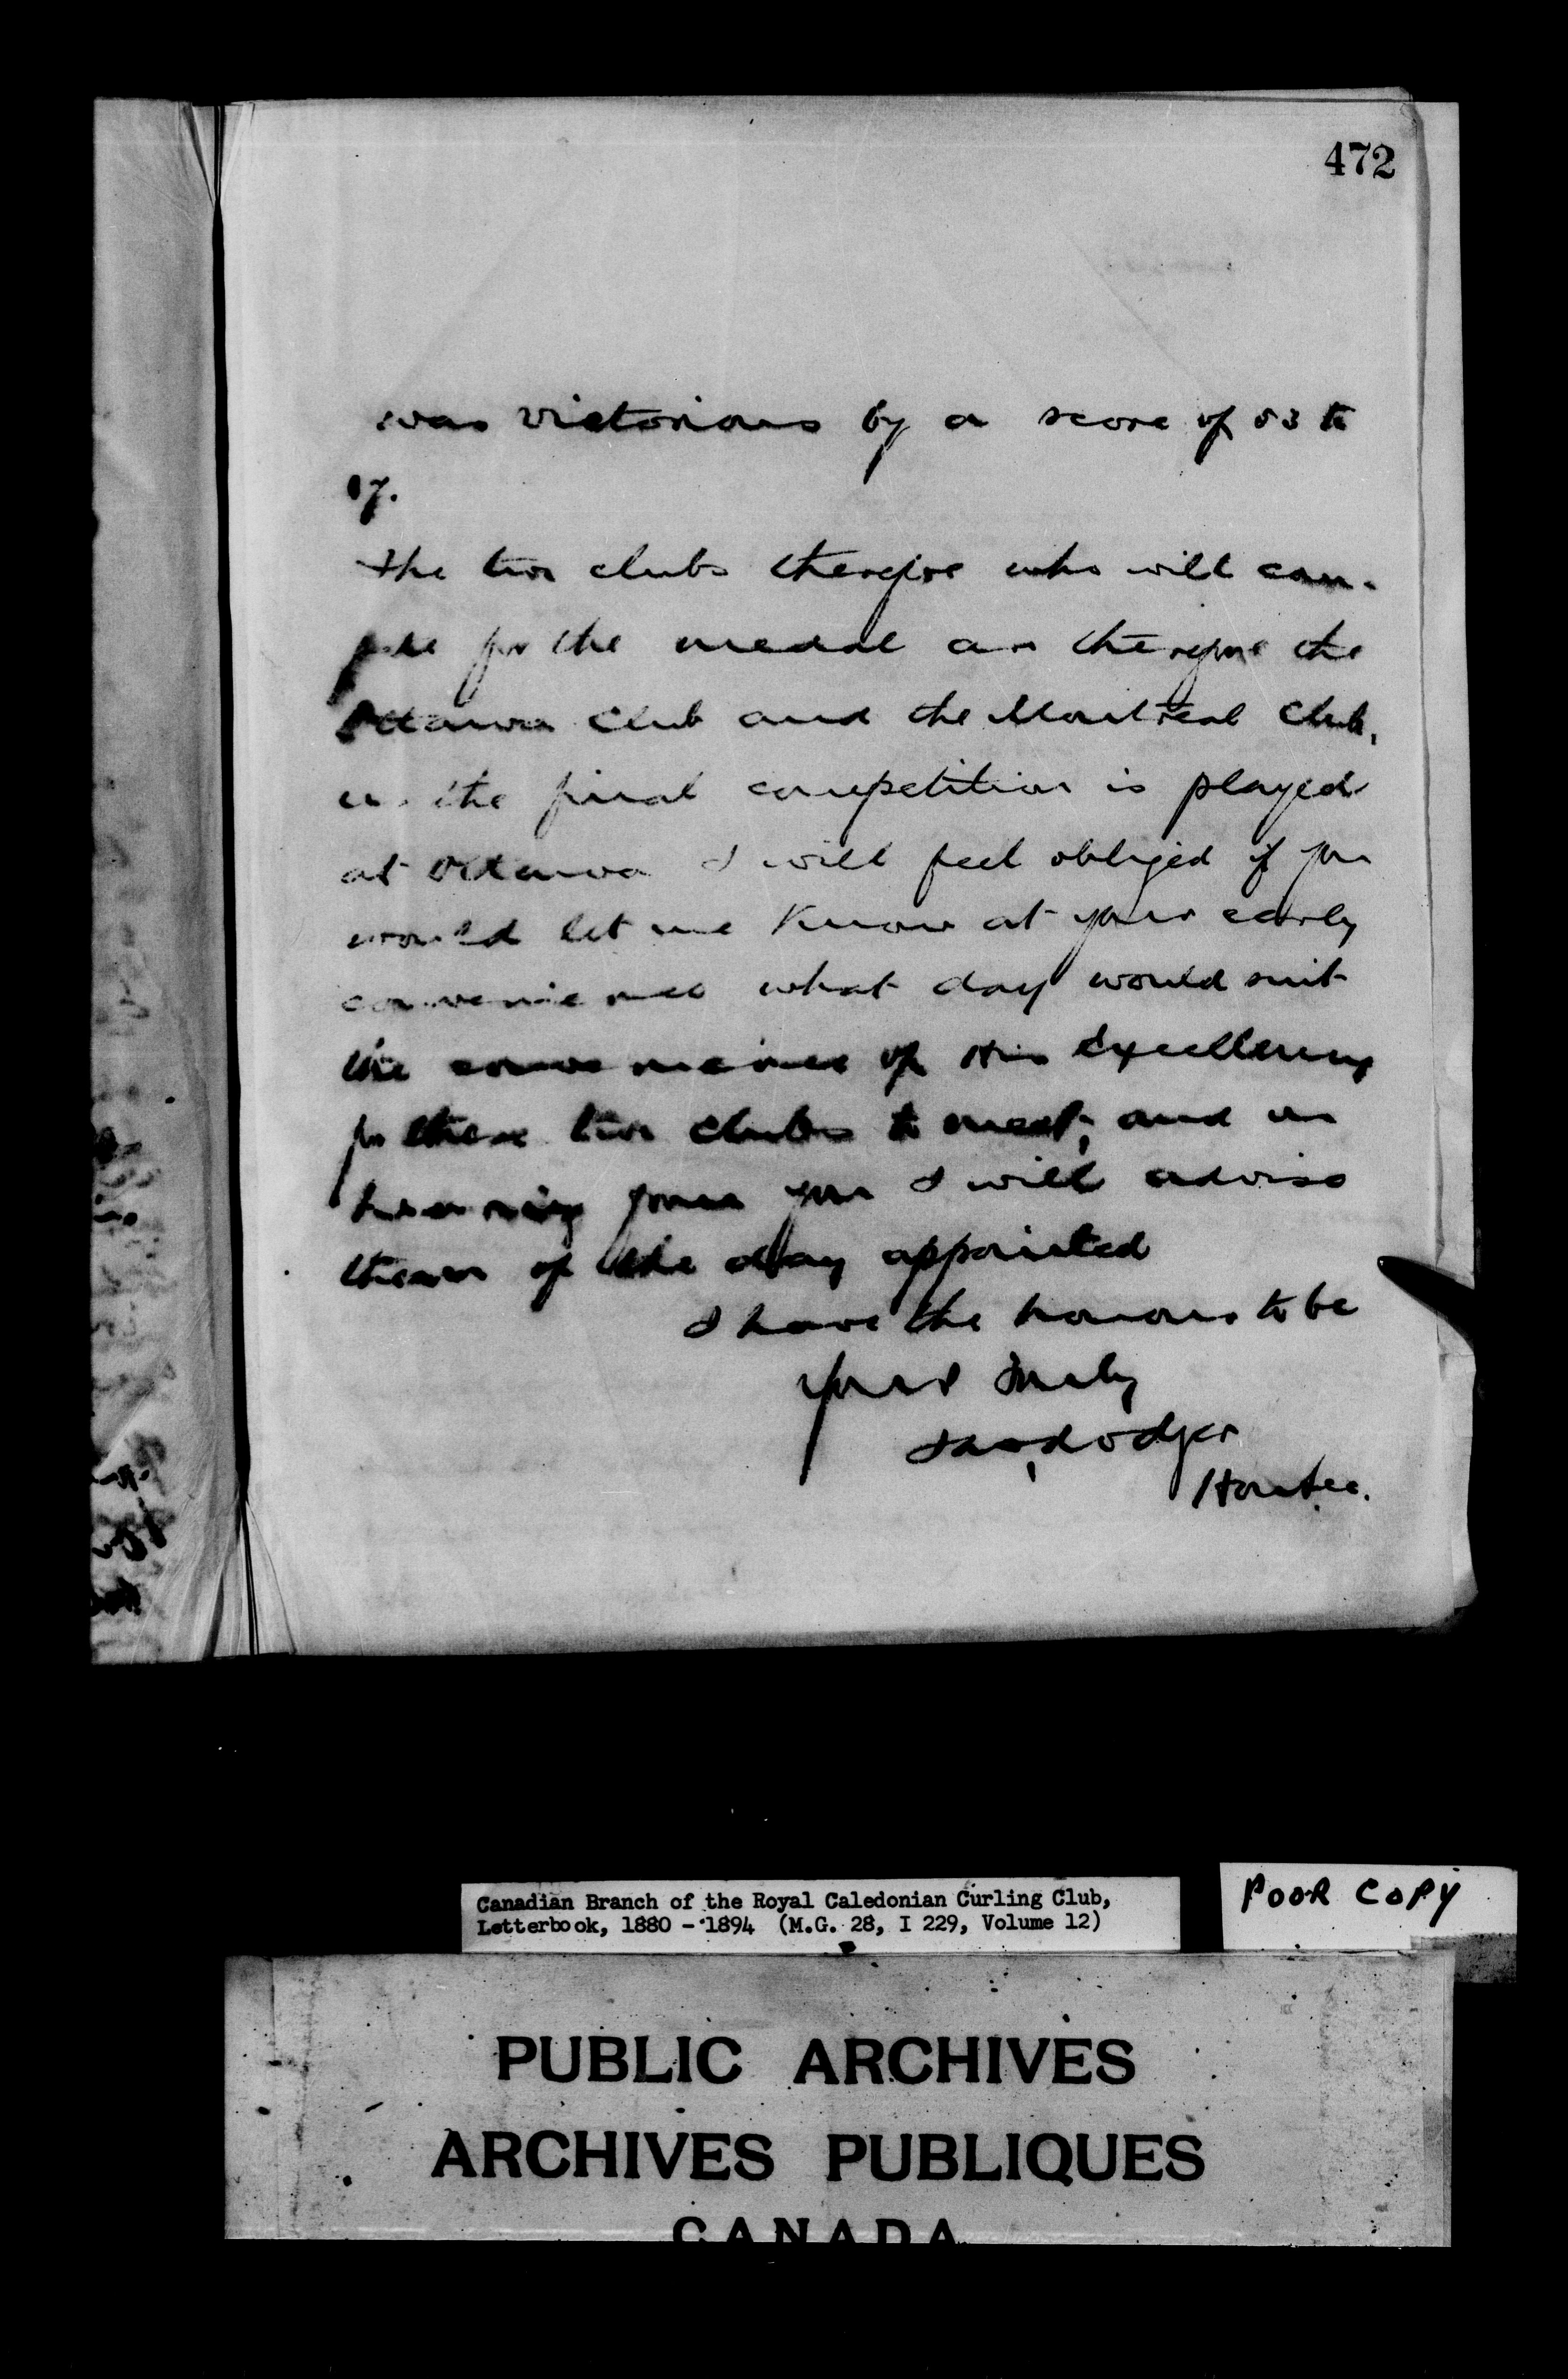 472
was victorious by a score of 53 to
17.
The two clubs therefore who will com-
pete for the medal are therefore the
Ottawa Club and the Montreal Club,
as the final competition is played
at Ottawa I will feel obliged if you
would let me know at your early
convenience what day would suit
the convenience of His Excellency
for these two clubs to meet, and on
hearing from you I will advise
them of the day appointed
I have the honour to be
Yours truly
Hon Sec.
Canadian Branch of the Royal Caledonian Curling Club,
Letterbook, 1880 - 1894 (M.G. 28, I 229, Volume 12)
POOR COPY
PUBLIC ARCHIVES
ARCHIVES PUBLIQUES
CANADA